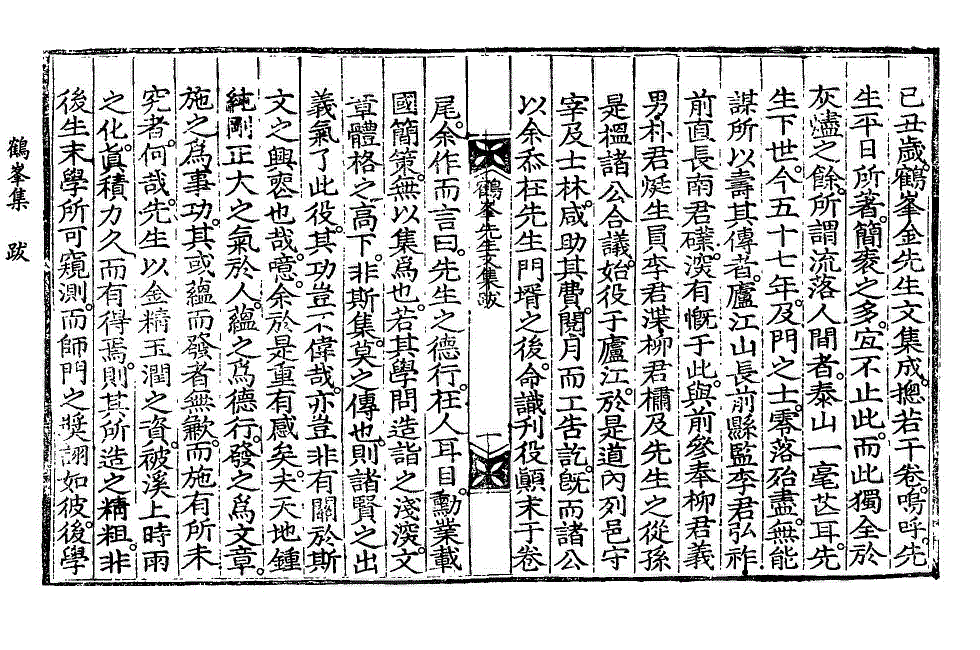 己丑歲鶴峯金先生文集成摠若干卷嗚呼先
生平日所著簡袠之多宜不止此而此獨全於
灰燼之餘所謂流落人間者泰山一毫芒耳先
生下世今五十七年及門之士零落殆盡無能
謀所以壽其傳者廬江山長前縣監李君弘祚
前直長南君磼深有慨于此與前參奉柳君義
男朴君烶生員李君澿柳君橚及先生之從孫
是榲諸公合議始役于廬江於是道內列邑守
宰及士林咸助其費閱月而工告訖旣而諸公
以余忝在先生門壻之後命識刊役顚末于卷
鶴峯先生文集跋
一
尾余作而言曰先生之德行在人耳目勳業載
國簡策無以集爲也若其學問造詣之淺深文
章體格之高下非斯集莫之傳也則諸賢之出
義氣了此役其功豈不偉哉亦豈非有關於斯
文之興喪也哉噫余於是重有感矣夫天地鍾
純剛正大之氣於人蘊之爲德行發之爲文章
施之爲事功其或蘊而發者無歉而施有所未
究者何哉先生以金精玉潤之資被溪上時雨
之化眞積力久而有得焉則其所造之精粗非
後生末學所可窺測而師門之奬詡如彼後學
鶴峯集　跋